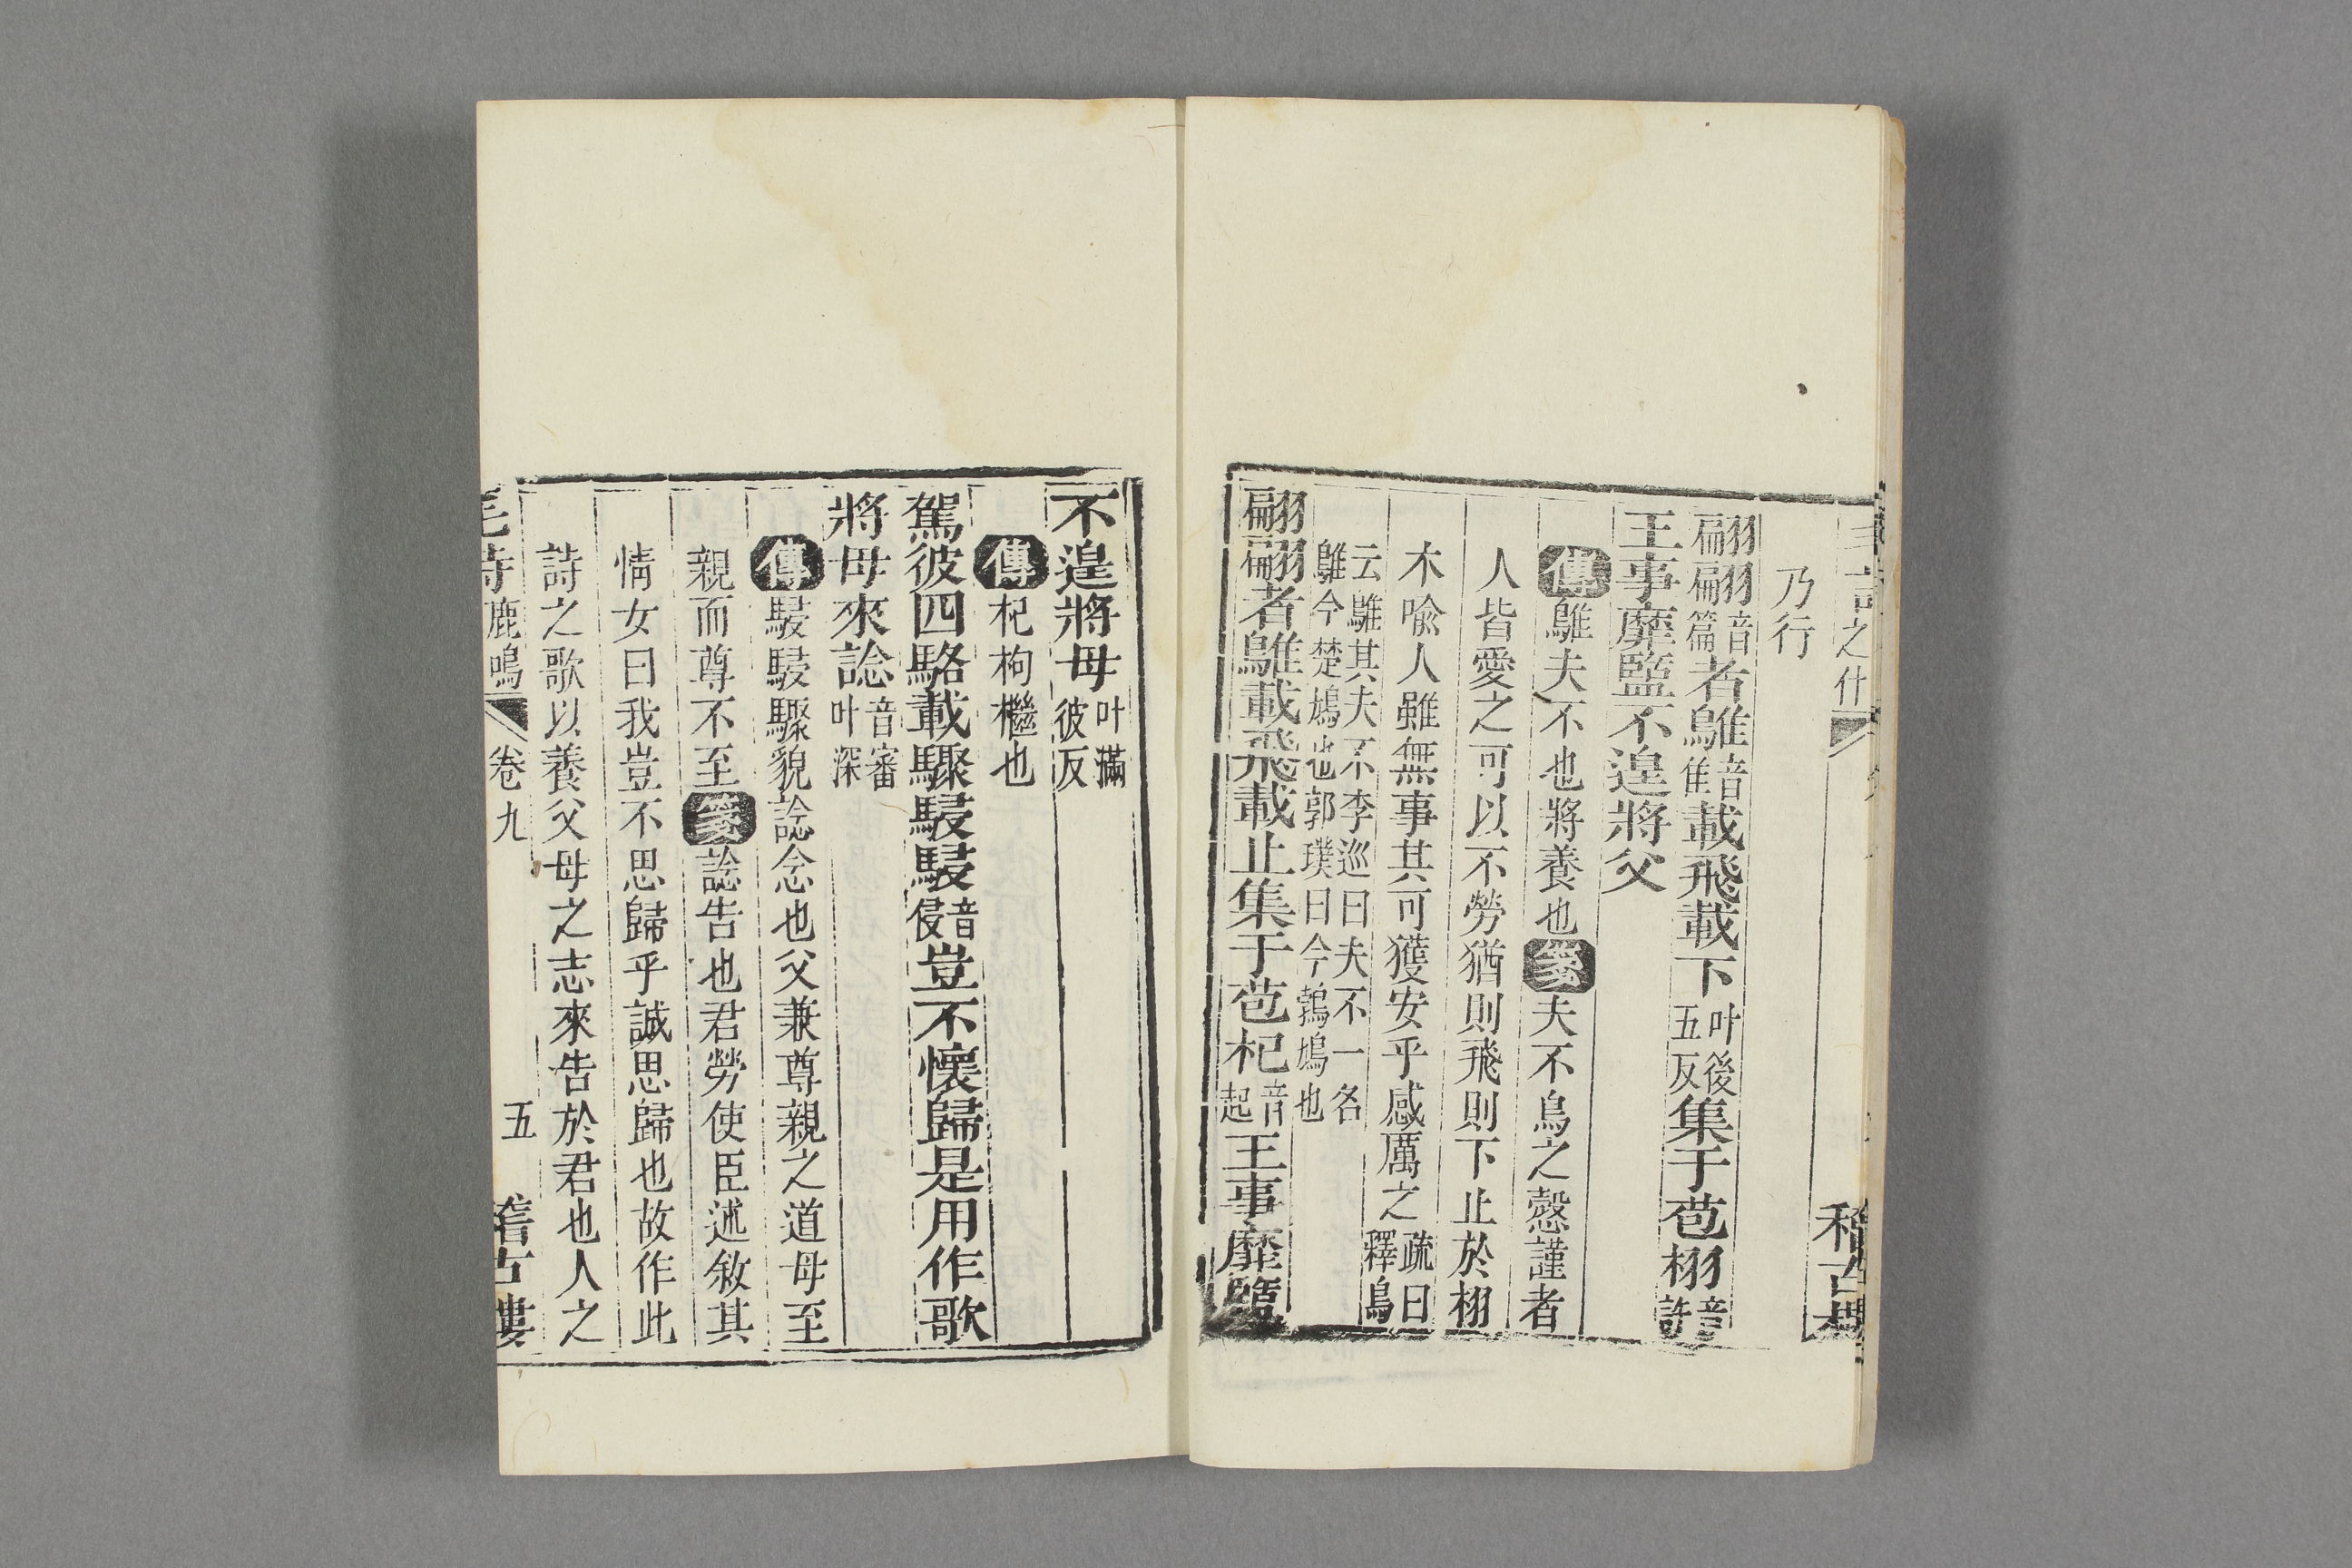 之什
乃行
翩翩音篇者鵻音隹載飛載下叶後五反集于苞栩音許
王事靡盬不遑將父
傳鵻夫不也將養也箋夫不鳥之慤謹者
人皆愛之可以不勞猶則飛則下止於栩
木喩人雖無事其可獲安乎感厲之疏曰釋鳥
云鵻其夫不李巡曰夫不一名
鵻今楚鳩也郭璞曰今鶉鳩也
翩翩者鵻載飛載止集于苞杞音起王事靡盬
不遑將母叶滿彼反
傳杞枸檵也
駕彼四駱載驟駸駸音侵豈不懷歸是用作歌
將母來諗音審叶深
傳駸駸驟貌諗念也父兼尊親之道母至
親而尊不至箋諗告也君勞使臣述敘其
情女曰我豈不思歸乎誠思歸也故作此
詩之歌以養父母之志來告於君也人之
毛詩鹿鳴 卷九 五 稽古樓